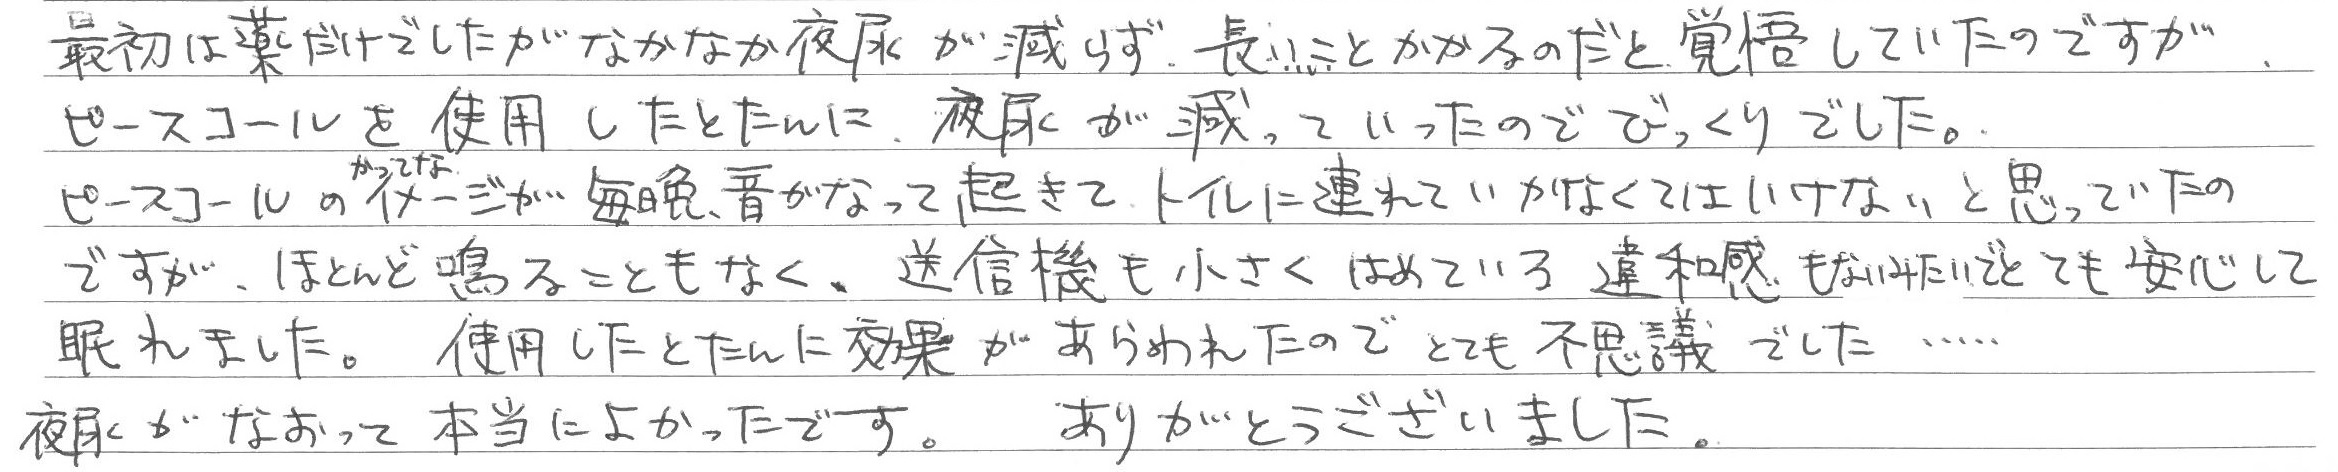 最初は薬だけでしたがなかなか夜尿が減らず、長いことかかるのだと覚悟していたのですが、
ピースコールを使用したとたんに、夜尿が減っていったのでびっくりでした。
かってな
ピースコールのイメージが毎晩、音がなって起きて、トイレに連れていかなくてはいけないと思っていたの
ですが、ほとんど鳴ることもなく、送信機も小さくはめている違和感もないみたいでとても安心して
眠れました。 使用したとたんに効果があらわれたのでとても不思議でした……
夜尿がなおって本当によかったです。 ありがとうございました。